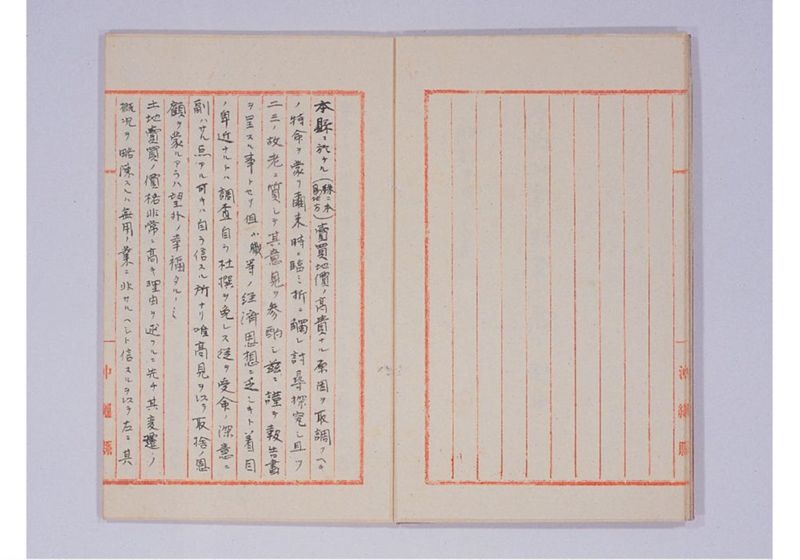 本縣ニ於ケル(殊ニ本島地方)賣買地價ノ高貴ナル原因ヲ取調フヘキ
ノ特命ヲ蒙リ爾来時ニ臨ミ折ニ觸レ討尋探究シ且ツ
二三ノ故老ニ質シテ其意見ヲ参酌シ茲ニ謹テ報告書
ヲ呈スル事トセリ但小職等ノ経済思想ニ乏シキト着目
ノ卑近ナルトハ調査自ラ杜撰ヲ免レス從テ受命ノ深意ニ
副ハサル点アル可キハ自ラ信スル所ナリ唯高見ヲ以テ取捨ノ恩
顧ヲ蒙ルアラハ望外ノ幸福タルヘシ
土地賣買ノ價格非常ニ高キ理由ヲ述フルニ先チ其変遷ノ
概況ヲ略陳スルハ無用ノ業ニ非サルヘシト信スルヲ以テ左ニ其
沖縄縣
沖縄縣